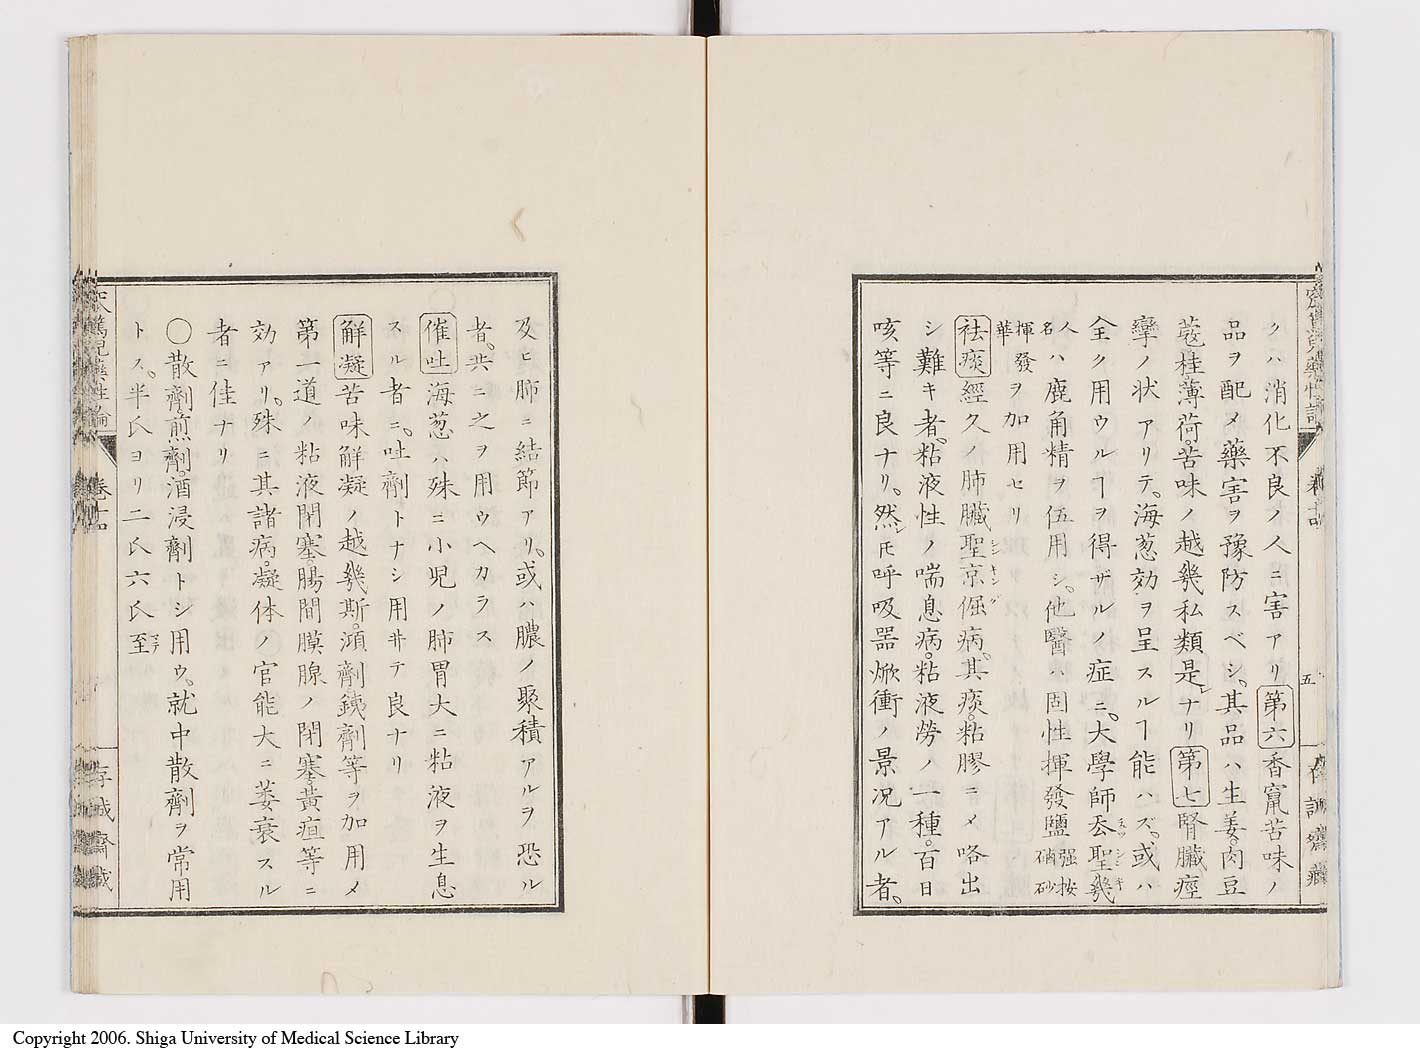 クハ消化不良ノ人ニ害アリ第六香竄苦味ノ
品ヲ配メ藥害ヲ豫防スベシ、其品ハ生姜。肉豆
蔲桂薄荷。苦味ノ越幾私類是レナリ第七腎臓痙
攣ノ状アリテ、海葱効ヲ呈スルヿ能ハズ、或ハ
全ク用ウルヿヲ得ザルノ症ニ、大學師忝聖幾
人名ハ鹿角精ヲ伍用シ、他醫ハ固性揮發鹽强按硇砂
揮發華ヲ加用セリ
祛痰經久ノ肺臓聖京倔病。其痰。粘膠ニメ咯出
シ難キ者、粘液性ノ喘息病。粘液勞ノ一種。百日
咳等ニ良ナリ。然レ𪜈呼吸器焮衝ノ景况アル者。
及ヒ肺ニ結節アリ。或ハ膿ノ聚積アルヲ恐ル
者、共ニ之ヲ用ウヘカラス
催吐海葱ハ殊ニ小児ノ肺胃大ニ粘液ヲ生息
スル者ニ、吐劑トナシ用ヰテ良ナリ
解凝苦味解凝ノ越幾斯。瀕劑銕劑等ヲ加用メ
第一道ノ粘液閉塞。腸間膜腺ノ閉塞黄疸等ニ
効アリ。殊ニ其諸病。凝体ノ官能大ニ萎衰スル
者ニ佳ナリ
○散劑煎劑酒浸劑トシ用ウ。就中散劑ヲ常用
トス。半氏ヨリ二氏六氏至
藥性論
卷十四
存誠齋蔵
五